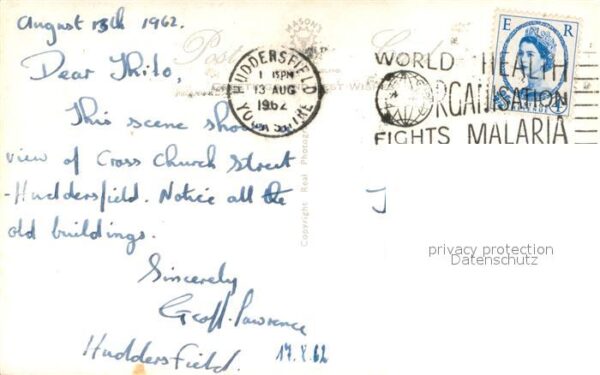 August 13th 1962.
Dear Thilo,
This scene shows
view of Cross Church Street
-Huddersfield. Notice all the
old buildings.
Sincerely
Geoff. Lawrence
Huddersfield.
17.8.62
Post Card
MASON'S
Copyright Real Photograph
HUDDERSFIELD
1 15PM
13 AUG
1962
YORKSHIRE
WORLD HEALTH
ORGANISATION
FIGHTS MALARIA
E R
privacy protection
Datenschutz